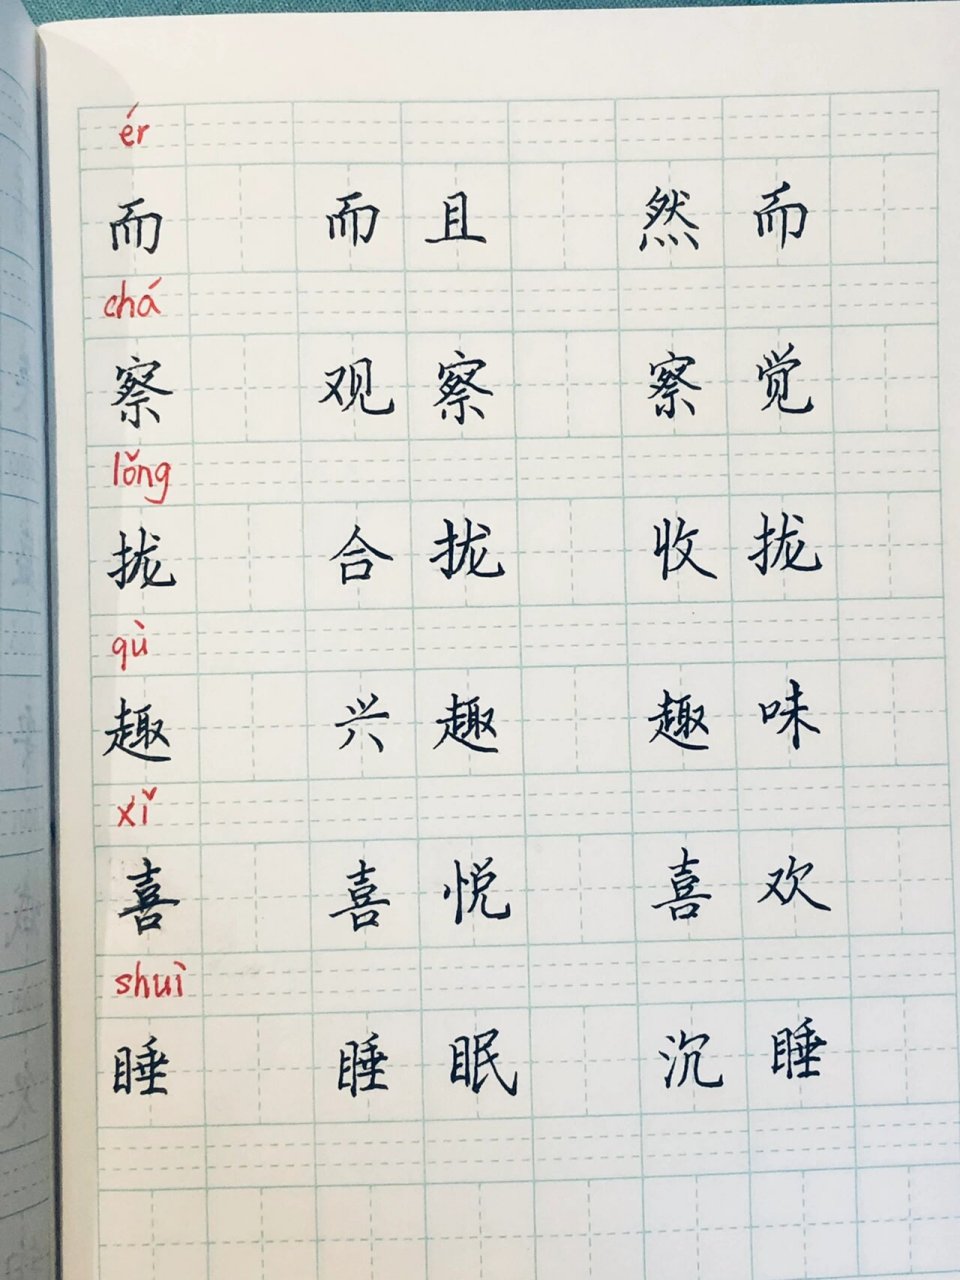 ér
而 而且 然而
chá
察 观察 察觉
lǒng
拢 合拢 收拢
qù
趣 兴趣 趣味
xǐ
喜 喜悦 喜欢
shuì
睡 睡眠 沉睡